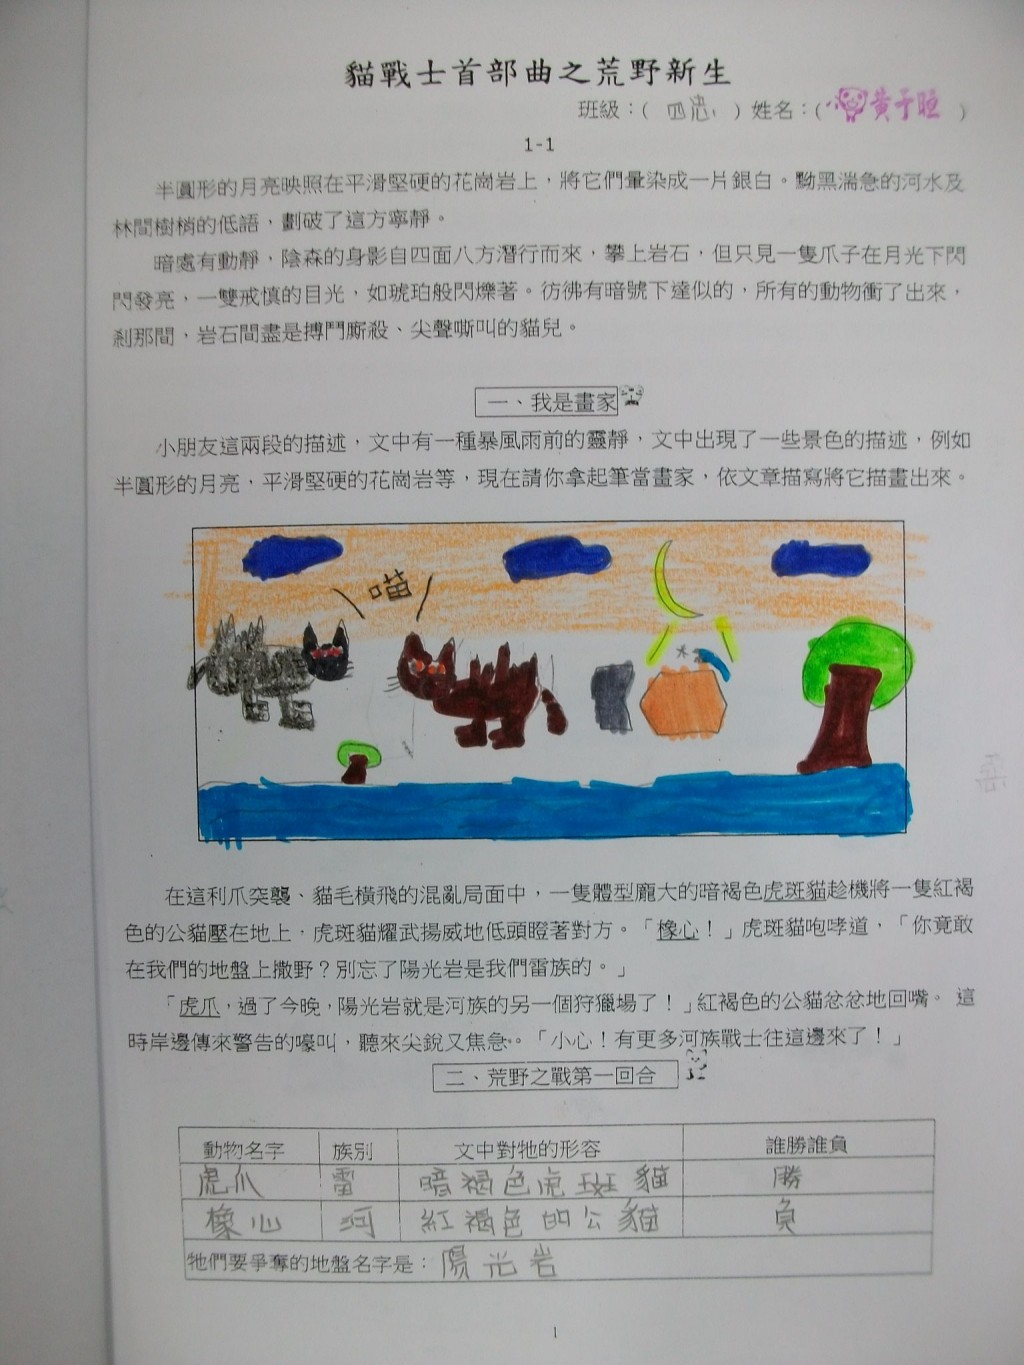 貓戰士首部曲之荒野新生
班級：( 四忠 ) 姓名：( 黃于 )
1-1
半圓形的月亮映照在平滑堅硬的花崗岩上，將它們暈染成一片銀白。黝黑湍急的河水及
林間樹梢的低語，劃破了這方寧靜。
暗處有動靜，陰森的身影自四面八方潛行而來，攀上岩石，但只見一隻爪子在月光下閃
閃發亮，一雙戒慎的目光，如琥珀般閃爍著。彷彿有暗號下達似的，所有的動物衝了出來，
剎那間，岩石間盡是搏鬥廝殺、尖聲嘶叫的貓兒。
一、我是畫家
小朋友這兩段的描述，文中有一種暴風雨前的靈靜，文中出現了一些景色的描述，例如
半圓形的月亮，平滑堅硬的花崗岩等，現在請你拿起筆當畫家，依文章描寫將它描畫出來。
喵
在這利爪突襲、貓毛橫飛的混亂局面中，一隻體型龐大的暗褐色虎斑貓趁機將一隻紅褐
色的公貓壓在地上，虎斑貓耀武揚威地低頭瞪著對方。「橡心！」虎斑貓咆哮道，「你竟敢
在我們的地盤上撒野？別忘了陽光岩是我們雷族的。」
「虎爪，過了今晚，陽光岩就是河族的另一個狩獵場了！」紅褐色的公貓忿忿地回嘴。 這
時岸邊傳來警告的嚎叫，聽來尖銳又焦急。「小心！有更多河族戰士往這邊來了！」
二、荒野之戰第一回合
動物名字 族別 文中對牠的形容 誰勝誰負
虎爪 雷 暗褐色虎斑貓 勝
橡心 河 紅褐色的公貓 負
牠們要爭奪的地盤名字是：陽光岩
1